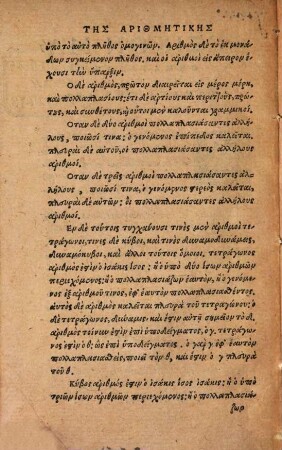 ΤΗΣ ΑΡΙΘΜΗΤΙΚΗΣ
ὑπὸ τὸ αὐτὸ πλῆθος ὁμογενῶν. Αριθμὸς δὲ τὸ ἐκ μονά-
δων συγκείμενον πλῆθος, καὶ οἱ ἀριθμοὶ εἰς ἄπειρον
ἔχουσι τὴν ὕπαρξιν.
Ο δὲ ἀριθμὸς, πρῶτον διαιρεῖται εἰς μέρος μέρη,
καὶ πολλαπλασίους, ἔτι δὲ ἀρτίους καὶ περιττοὺς, πρώ-
τους, καὶ συνθέτους, οὗτοι μὲν καλοῦνται γραμμικοὶ.
Οταν δὲ δύο ἀριθμοὶ πολλαπλασιάσαντες ἀλλή-
λους, ποιῶσί τινα, ὁ γενόμενος ἐπίπεδος καλεῖται,
πλευραὶ δὲ αὐτοῦ, οἱ πολλαπλασιάσαντες ἀλλήλους
ἀριθμοὶ.
Οταν δὲ τρεῖς ἀριθμοὶ πολλαπλασιάσαντες ἀλλή-
λους, ποιῶσι τινα, ὁ γενόμενος στερεὸς καλεῖται,
πλευραὶ δὲ αὐτῶν, οἱ πολλαπλασιάσαντες ἀλλήλους
ἀριθμοὶ.
Εν δὲ τούτοις τυγχάνουσι τινὲς μὲν ἀριθμοὶ τε-
τράγωνοι, τινὲς δὲ κύβοι, καὶ τινὲς δυναμοδυνάμεις,
δυναμόκυβοι, καὶ ἄλλοι τούτοις ὅμοιοι. τετράγωνος
ἀριθμὸς ἐστὶν ὁ ἰσάκις ἴσος: ἢ ὁ ὑπὸ δύο ἴσων ἀριθμῶν
περιεχόμενος, ἢ ὁ πολλαπλασιάζων ἑαυτὸν, ἢ ὁ γενόμενος
ἐξ ἀριθμοῦ τινος, ἐφ' ἑαυτὸν πολλαπλασιασθέντος.
αὐτὸς δὲ ἀριθμὸς καλεῖται πλευρὰ τοῦ τετραγώνου: ὁ
δὲ τετράγωνος, δύναμις. καὶ ἔστιν αὐτῆ σημεῖον τὸ δ.
ἀριθμὸς τοίνυν ἐστὶν ἐπὶ ὑποδείγματος, ὁ γ, τετράγω-
νος ἐστὶν ὁ θ, ὡς ἐπὶ ὑποδείγματος. ὁ γὰρ γ ἐφ' ἑαυτὸν
πολλαπλασιασθεὶς, ποιεῖ τὸν θ, καὶ ἔστιν ὁ γ πλευρὰ
τοῦ θ.
Κύβος ἀριθμὸς ἐστὶν ὁ ἰσάκις ἴσος ἰσάκις: ἢ ὁ ὑπὸ
τριῶν ἴσων ἀριθμῶν περιεχόμενος, ἢ ὁ πολλαπλασιά-
ζων